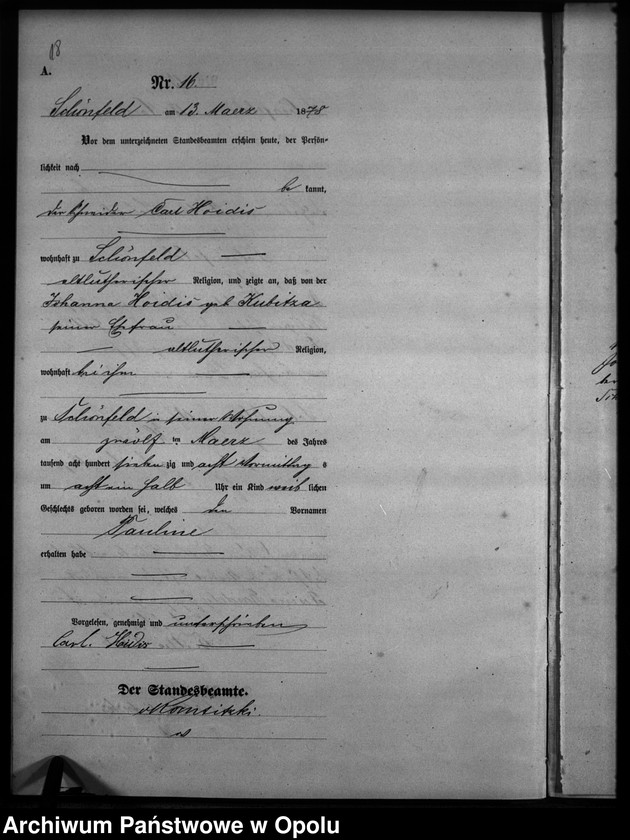 18
A.
Nr. 16
Schönfeld am 13. Maerz 1878
Vor dem unterzeichneten Standesbeamten erschien heute, der Persön-
lichkeit nach
be kannt,
der Carl Hoidis
wohnhaft zu Schönfeld
altlutherischer Religion, und zeigte an, daß von der
Johanna Hoidis geb Kubitza
seiner Ehefrau
altlutherischer Religion,
wohnhaft bei ihm
zu Schönfeld in seiner Wohnung
am zwölf ten Maerz des Jahres
tausend acht hundert sieben zig und acht Vormittag s
um acht ein halb Uhr ein Kind weib lichen
Geschlechts geboren worden sei, welches den Vornamen
Pauline
erhalten habe
Vorgelesen, genehmigt und unterschrieben
Carl. Hoidis
Der Standesbeamte.
Archiwum Państwowe w Opolu